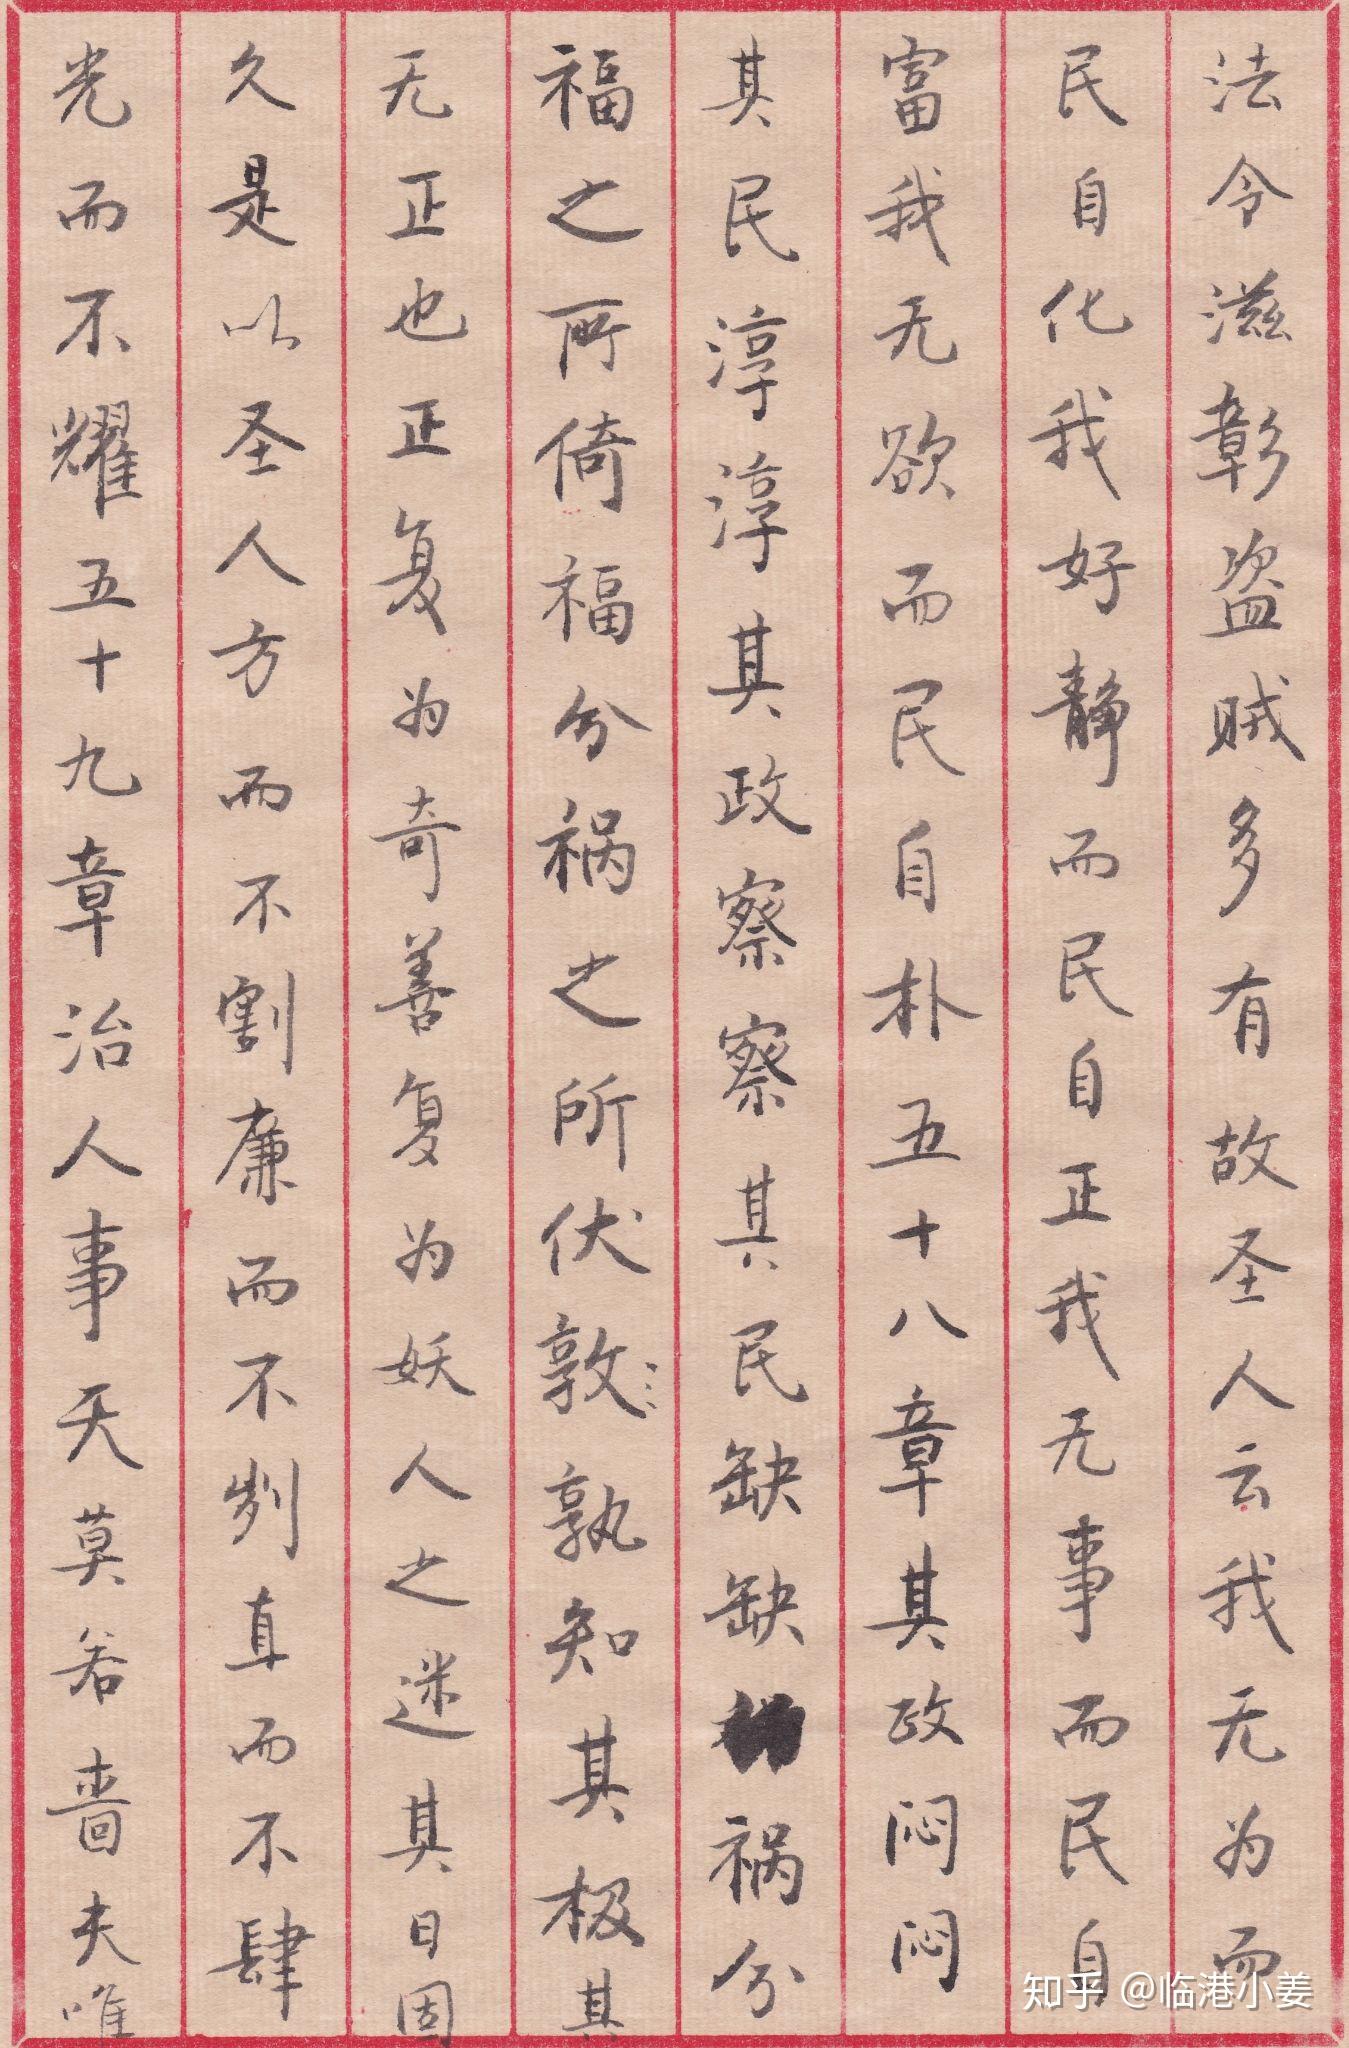 法令滋彰盗贼多有故圣人云我无为而
民自化我好静而民自正我无事而民自
富我无欲而民自朴五十八章其政闷闷
其民淳淳其政察察其民缺缺祸兮
福之所倚福兮祸之所伏敦孰知其极其
无正也正复为奇善复为妖人之迷其日固
久是以圣人方而不割廉而不刿直而不肆
光而不耀五十九章治人事天莫若啬夫唯
知乎 @临港小姜